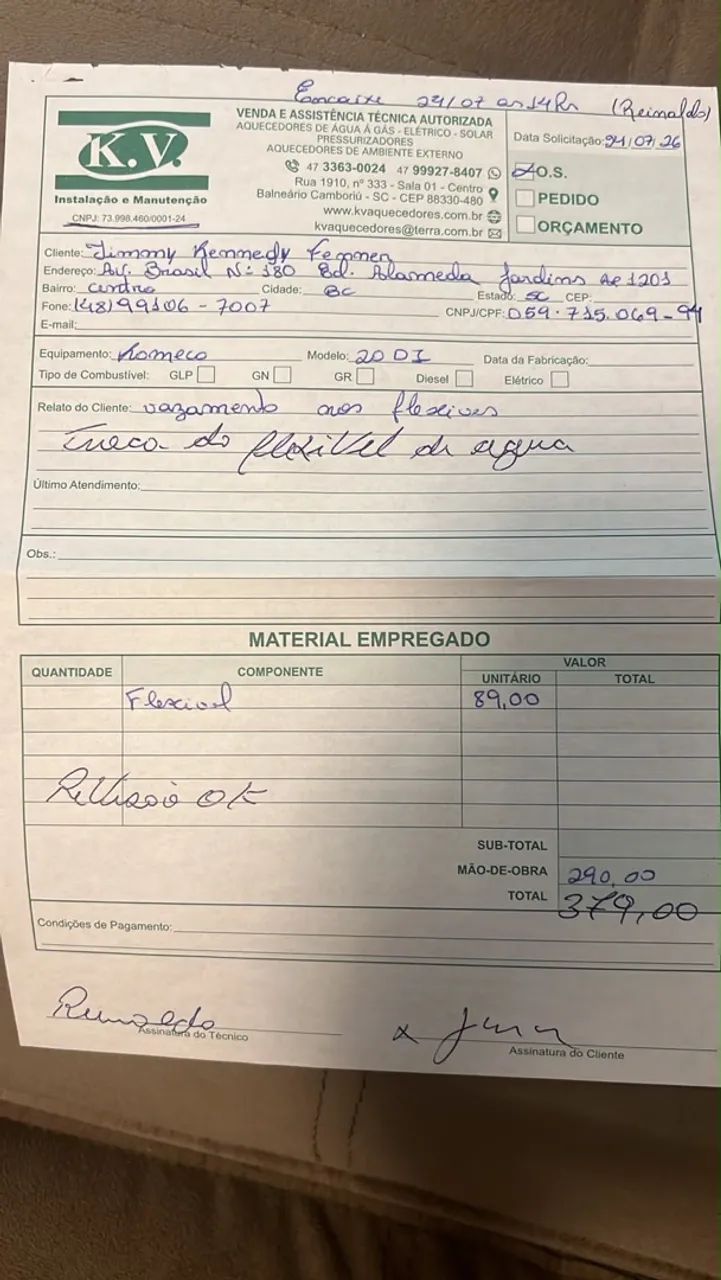 Encaixe 24/07 as 14Hr (Reinaldo)
K.V.
Instalação e Manutenção
CNPJ: 73.998.460/0001-24
VENDA E ASSISTÊNCIA TÉCNICA AUTORIZADA
AQUECEDORES DE ÁGUA À GÁS - ELÉTRICO - SOLAR
PRESSURIZADORES
AQUECEDORES DE AMBIENTE EXTERNO
47 3363-0024 47 99927-8407
Rua 1910, nº 333 - Sala 01 - Centro
Balneário Camboriú - SC - CEP 88330-480
www.kvaquecedores.com.br
kvaquecedores@terra.com.br
Data Solicitação: 24/07/26
O.S.
PEDIDO
ORÇAMENTO
Cliente: Jimmy Kennedy
Endereço: Av. Brasil Nº: 180 Ed. Alameda Jardins AP 1201
Bairro: centro Cidade: BC Estado: SC CEP:
Fone: (48) 99106-7007 CNPJ/CPF: 059.715.069-94
E-mail:
Equipamento: Komeco Modelo: 20 DI Data da Fabricação:
Tipo de Combustível: GLP GN GR Diesel Elétrico
Relato do Cliente: vazamento nos flexives
Troca do flexivel de agua
Último Atendimento:
Obs.:
MATERIAL EMPREGADO
QUANTIDADE COMPONENTE VALOR
UNITÁRIO TOTAL
Flexivel 89,00
OK
SUB-TOTAL
MÃO-DE-OBRA 290,00
TOTAL 379,00
Condições de Pagamento:
Reinaldo
Assinatura do Técnico
x
Assinatura do Cliente